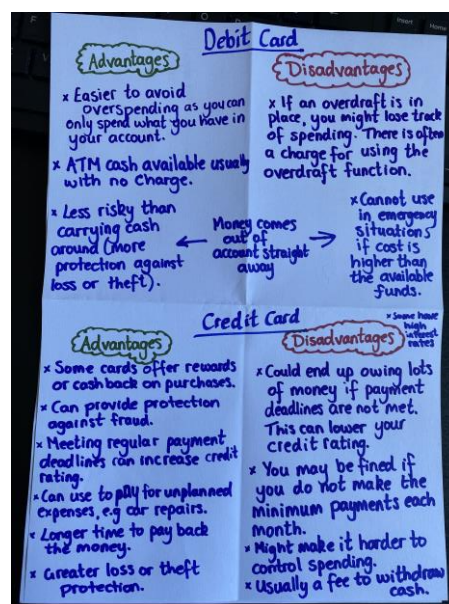 Insert
Home
F
Debit Card
Advantages
x Easier to avoid
overspending as you can
only spend what you have in
your account.
x ATM cash available usually
with no charge.
x Less risky than
carrying cash
around (more
protection against
loss or theft).
Disadvantages
x If an overdraft is in
place, you might lose track
of spending. There is often
a charge for using the
overdraft function.
x Cannot use
in emergency
situations
if cost is
higher than
the available
funds.
← Money comes →
out of
account straight
away
Credit Card
Advantages
x Some cards offer rewards
or cashback on purchases.
x Can provide protection
against fraud.
x Meeting regular payment
deadlines can increase credit
rating.
x Can use to pay for unplanned
expenses, e.g car repairs.
x Longer time to pay back
the money.
x Greater loss or theft
protection.
Disadvantages
x Some have
high
interest
rates
x Could end up owing lots
of money if payment
deadlines are not met.
This can lower your
credit rating.
x You may be fined if
you do not make the
minimum payments each
month.
x Might make it harder to
control spending.
x Usually a fee to withdraw
cash.